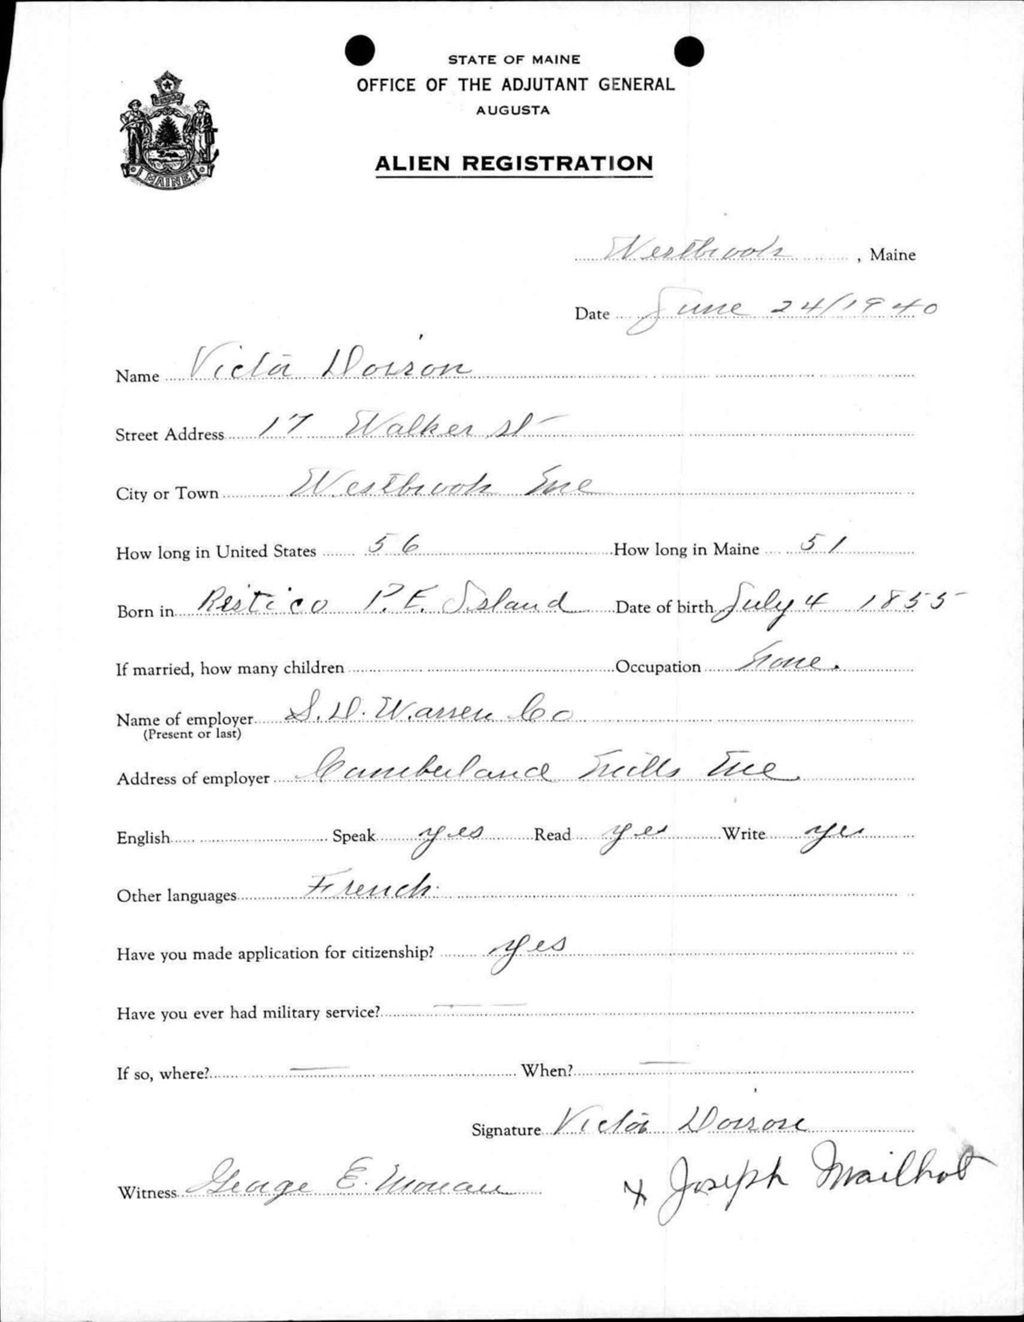 STATE OF MAINE
OFFICE OF THE ADJUTANT GENERAL
AUGUSTA
MAINE
ALIEN REGISTRATION
Westbrook, Maine
Date June 24/1940
Name Victor Doiron
Street Address 17 Walker St
City or Town Westbrook Me
How long in United States 56 How long in Maine 51
Born in Restico P.E. Island Date of birth July 4 1855
If married, how many children Occupation None.
Name of employer S.D. Warren Co
(Present or last)
Address of employer Cumberland Mills Me
English Speak yes Read yes Write yes
Other languages French
Have you made application for citizenship? yes
Have you ever had military service? —
If so, where? — When? —
Signature Victor Doiron
Witness George E.
x Joseph Mailhot